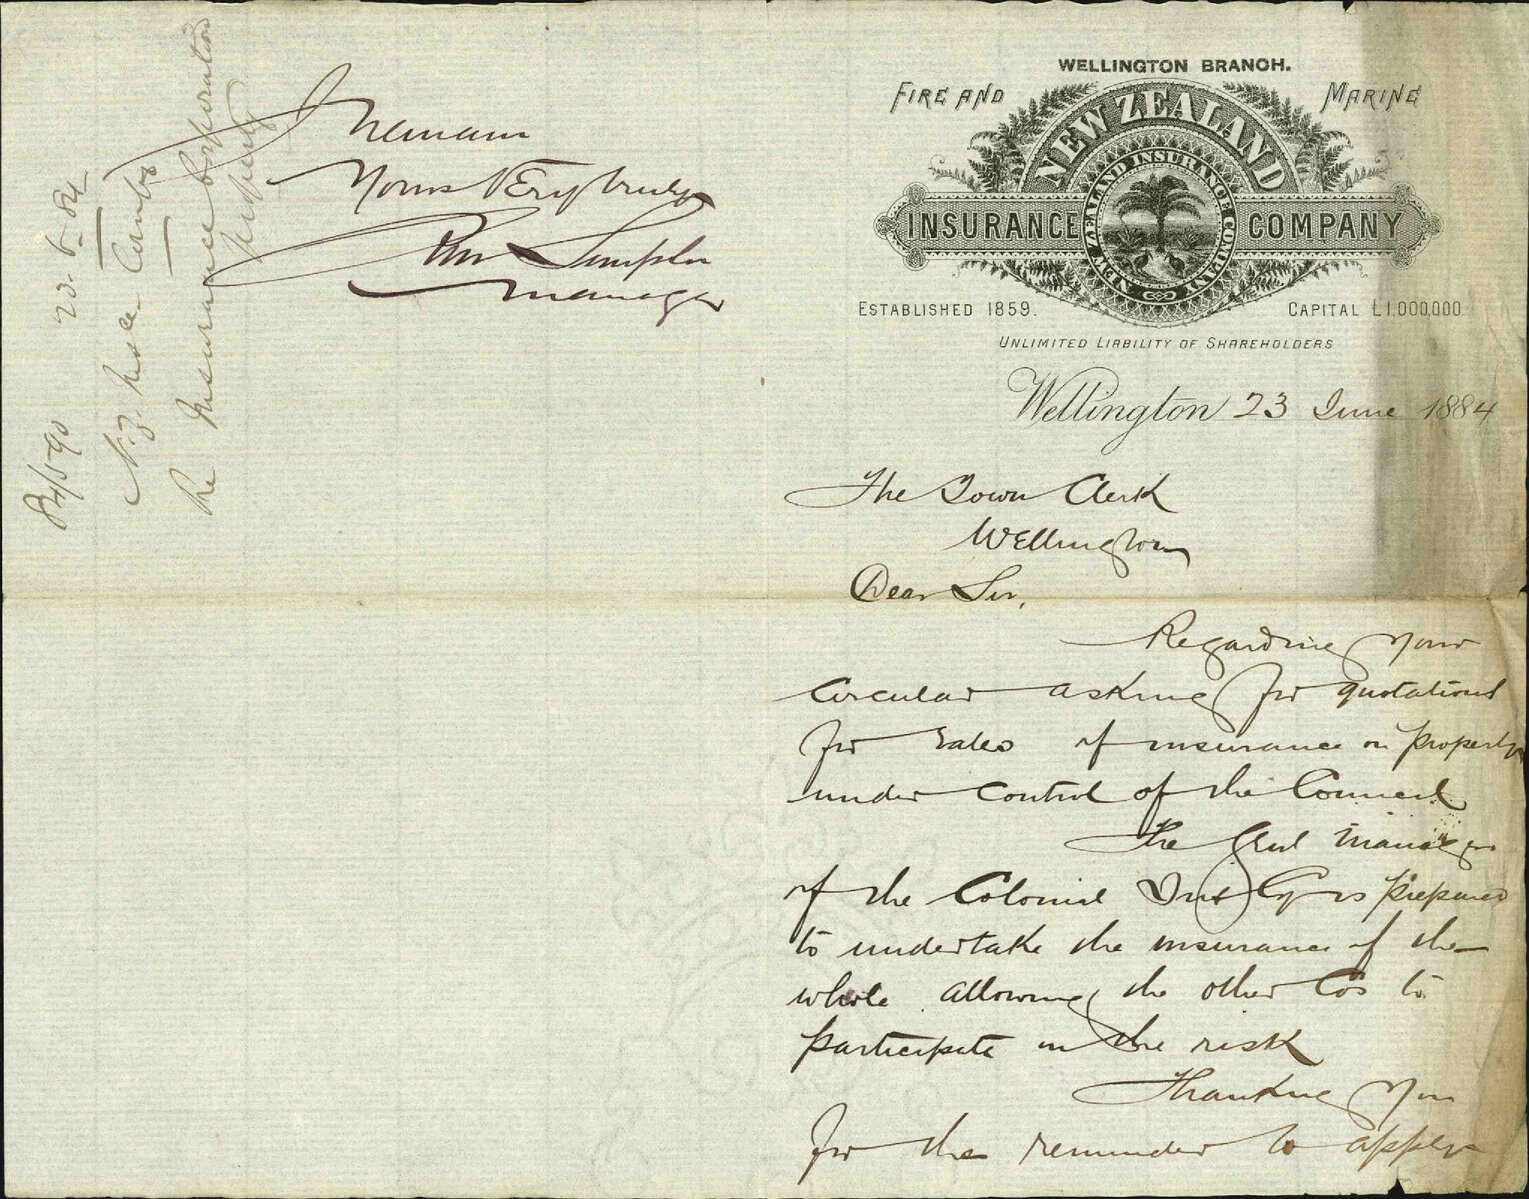 WELLINGTON BRANCH.
FIRE AND MARINE
NEW ZEALAND
INSURANCE COMPANY
NEW ZEALAND INSURANCE COMPANY
ESTABLISHED 1859. CAPITAL £1,000,000
UNLIMITED LIABILITY OF SHAREHOLDERS
Wellington 23 June 1884
The Town Clerk
Wellington
Dear Sir,
Regarding your
circular asking for quotations
for rates of insurance on property
under control of the Council.
The Genl Manager
of the Colonial Ins Cy is prepared
to undertake the insurance of the
whole allowing the other Cos to
participate in the risk
Thanking you
for the reminder to apply
I remain
Yours Very truly
Simpson
Manager
84/590 23. 6. 84
N.Z. Insce Comby
Re Insurance Corporation
Property